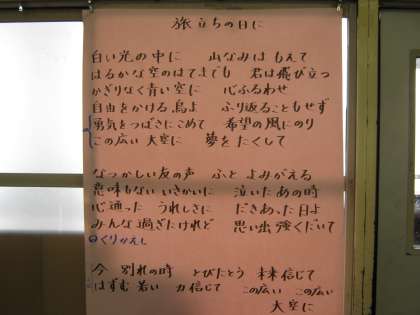 旅立ちの日に
白い光の中に 山なみはもえて
はるかな空のはてまでも 君は飛び立つ
かぎりなく青い空に 心ふるわせ
自由をかける鳥よ ふり返ることもせず
勇気をつばさにこめて 希望の風にのり
この広い大空に 夢をたくして
なつかしい友の声 ふとよみがえる
意味もないいさかいに 泣いたあの時
心通った うれしさに だきあった日よ
みんな過ぎたけれど 思い出強くだいて
くりかえし
今 別れの時 とびたとう 未来信じて
はずむ若い 力信じて この広い この広い
大空に